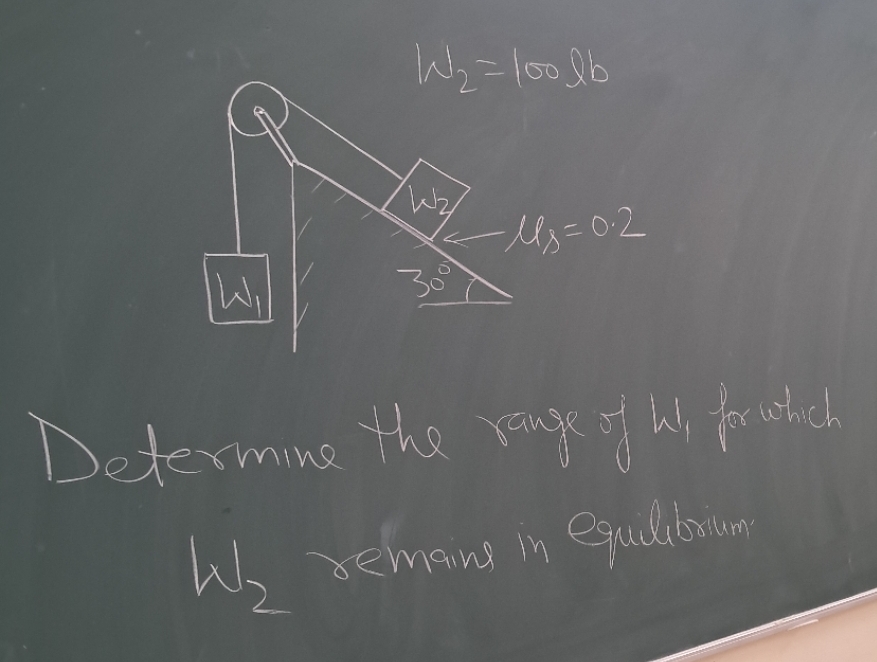 W₂ = 100 lb
W₂
μs = 0.2
30°
W₁
Determine the range of W₁ for which
W₂ remains in equilibrium.